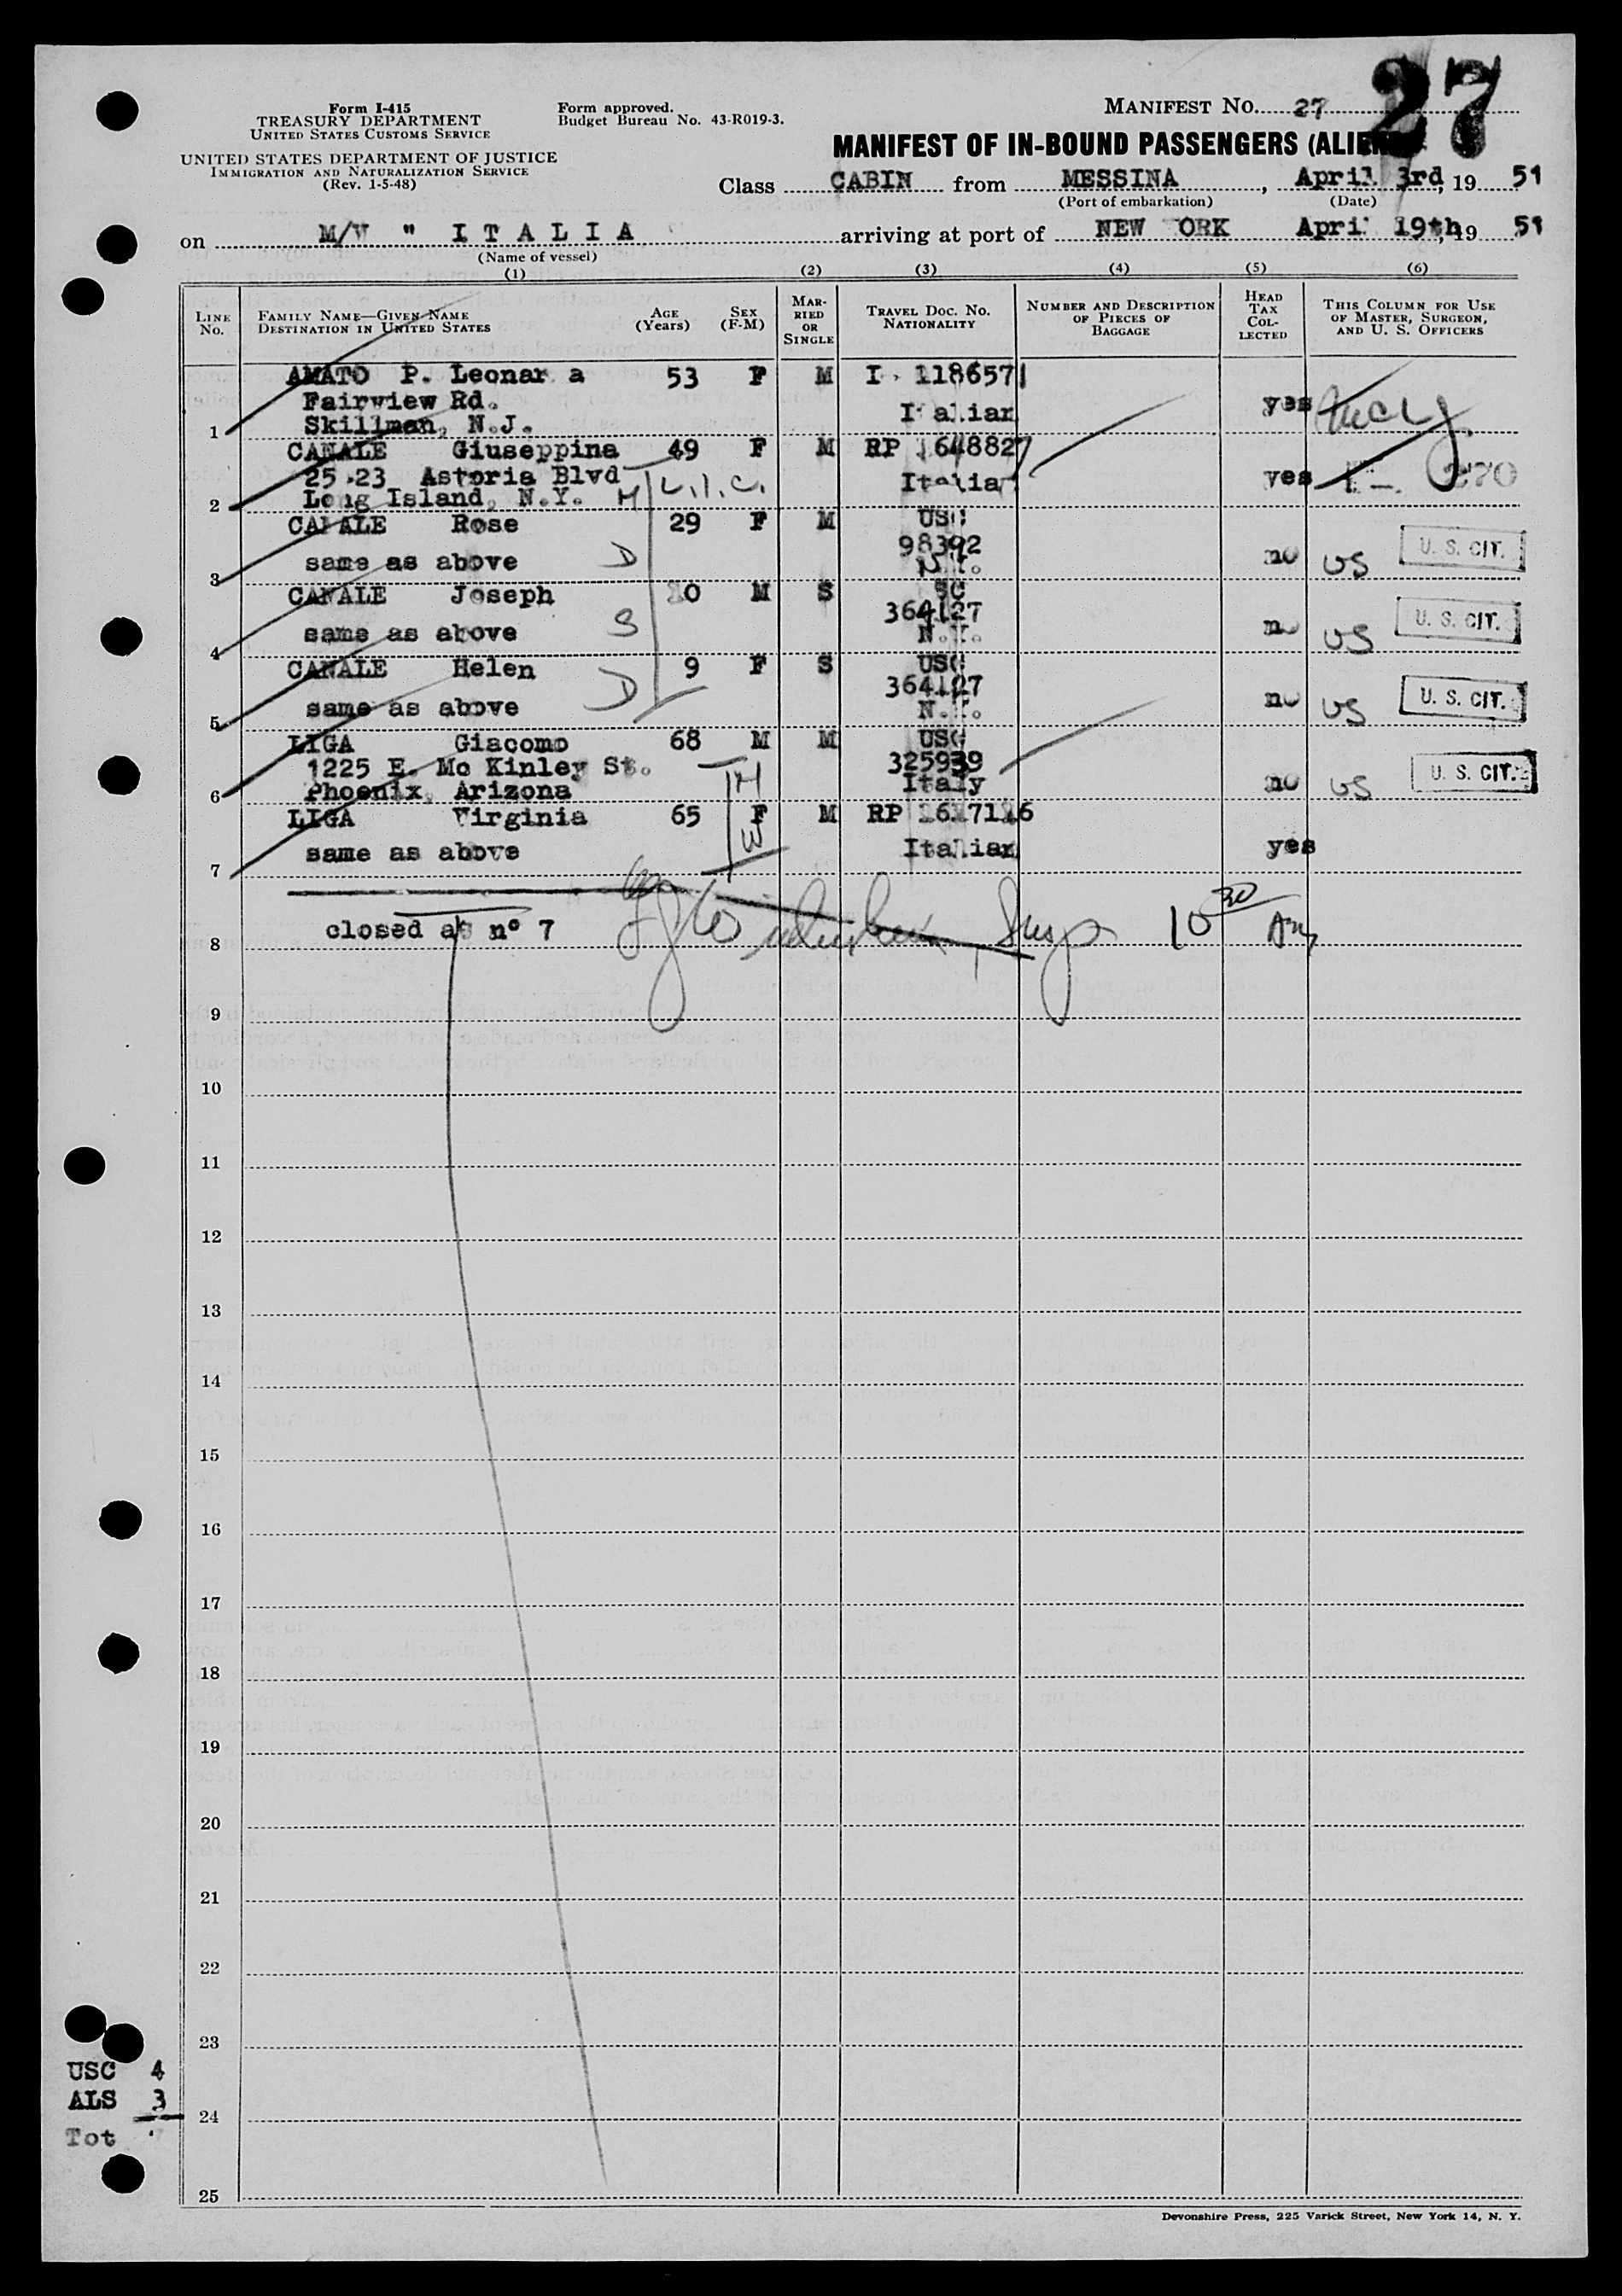 27
Form I-415
TREASURY DEPARTMENT
UNITED STATES CUSTOMS SERVICE
UNITED STATES DEPARTMENT OF JUSTICE
IMMIGRATION AND NATURALIZATION SERVICE
(Rev. 1-5-48)
Form approved.
Budget Bureau No. 43-R019-3.
MANIFEST NO. 27
MANIFEST OF IN-BOUND PASSENGERS
Class CABIN from MESSINA, April 3rd, 19 51
(Port of embarkation) (Date)
on M/V " ITALIA arriving at port of NEW ORK Apri 19th, 19 51
(Name of vessel)
(1) (2) (3) (4) (5) (6)
LINE No. FAMILY NAME—GIVEN NAME DESTINATION IN UNITED STATES AGE (Years) SEX (F-M) MARRIED OR SINGLE TRAVEL DOC. NO. NATIONALITY NUMBER AND DESCRIPTION OF PIECES OF BAGGAGE HEAD TAX COLLECTED THIS COLUMN FOR USE OF MASTER, SURGEON, AND U. S. OFFICERS
AMATO P. Leonar a 53 F M I 118657
Fairview Rd. yes
1 Skillman, N.J. I aliar
CANALE Giuseppina 49 F M RP 1648827
25.23 Astoria Blvd Italia yes
2 Long Island, N.Y. H L.I.C. 270
CANALE Rose 29 F M USC
98392
3 same as above D N.Y. no US U. S. CIT.
CANALE Joseph 0 M S SC
364127
4 same as above S N.Y. n US U. S. CIT.
CANALE Helen 9 F S USC
364127
5 same as above D N.Y. no US U. S. CIT.
LIGA Giacomo 68 M M USC
1225 E. Mc Kinley St. 325939
6 Phoenix, Arizona H Italy no US U. S. CIT.
LIGA Virginia 65 F M RP
7 same as above W Italian yes
8 closed as n° 7 10 30 Am
9
10
11
12
13
14
15
16
17
18
19
20
21
22
23
USC 4
ALS 3
24
Tot
25
Devonshire Press, 225 Varick Street, New York 14, N. Y.